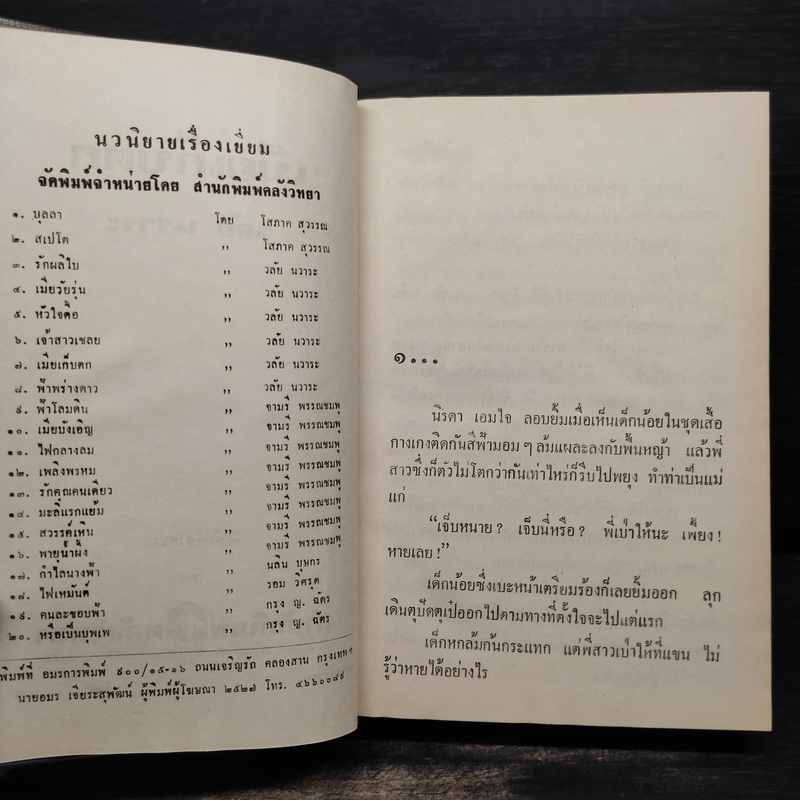 นวนิยายเรื่องเยี่ยม
จัดพิมพ์จำหน่ายโดย สำนักพิมพ์คลังวิทยา
๑. บุลลา โดย โสภาค สุวรรณ
๒. สเปโต ,, โสภาค สุวรรณ
๓. รักผลิใบ ,, วลัย นวาระ
๔. เมียวัยรุ่น ,, วลัย นวาระ
๕. หัวใจดื้อ ,, วลัย นวาระ
๖. เจ้าสาวเชลย ,, วลัย นวาระ
๗. เมียเก็บตก ,, วลัย นวาระ
๘. ฟ้าพร่างดาว ,, วลัย นวาระ
๙. ฟ้าโลมดิน ,, จามรี พรรณชมพู
๑๐. เมียบังเอิญ ,, จามรี พรรณชมพู
๑๑. ไฟกลางลม ,, จามรี พรรณชมพู
๑๒. เพลิงพรหม ,, จามรี พรรณชมพู
๑๓. รักคุณคนเดียว ,, จามรี พรรณชมพู
๑๔. มะลิแรกแย้ม ,, จามรี พรรณชมพู
๑๕. สวรรค์เหิน ,, จามรี พรรณชมพู
๑๖. พายุน้ำผึ้ง ,, จามรี พรรณชมพู
๑๗. กำไลนางฟ้า ,, นลิน บุษกร
๑๘. ไฟเหมันต์ ,, รอม วิศรุต
๑๙. คนละขอบฟ้า ,, กรุง ญ. ฉัตร
๒๐. หรือเป็นบุพเพ ,, กรุง ญ. ฉัตร
พิมพ์ที่ อมรการพิมพ์ ๙๐๐/๑๕-๑๖ ถนนเจริญรัถ คลองสาน กรุงเทพฯ
นายอมร เจียระสุพัฒน์ ผู้พิมพ์ผู้โฆษณา ๒๕๒๗ โทร. ๔๖๖๐๐๘๙
๑...
นิรดา เอมใจ ลอบยิ้มเมื่อเห็นเด็กน้อยในชุดเสื้อ
กางเกงติดกันสีฟ้ามอม ๆ ล้มแผละลงกับพื้นหญ้า แล้วพี่
สาวซึ่งก็ตัวไม่โตกว่ากันเท่าไหร่ก็รีบไปพยุง ทำท่าเป็นแม่
แก่
“เจ็บหนาย? เจ็บนี่หรือ? พี่เป่าให้นะ เพี้ยง!
หายเลย!”
เด็กน้อยซึ่งเบะหน้าเตรียมร้องก็เลยยิ้มออก ลุก
เดินตุปัดตุเป๋ออกไปตามทางที่ตั้งใจจะไปแต่แรก
เด็กหกล้มก้นกระแทก แต่พี่สาวเป่าให้ที่แขน ไม่
รู้ว่าหายได้อย่างไร